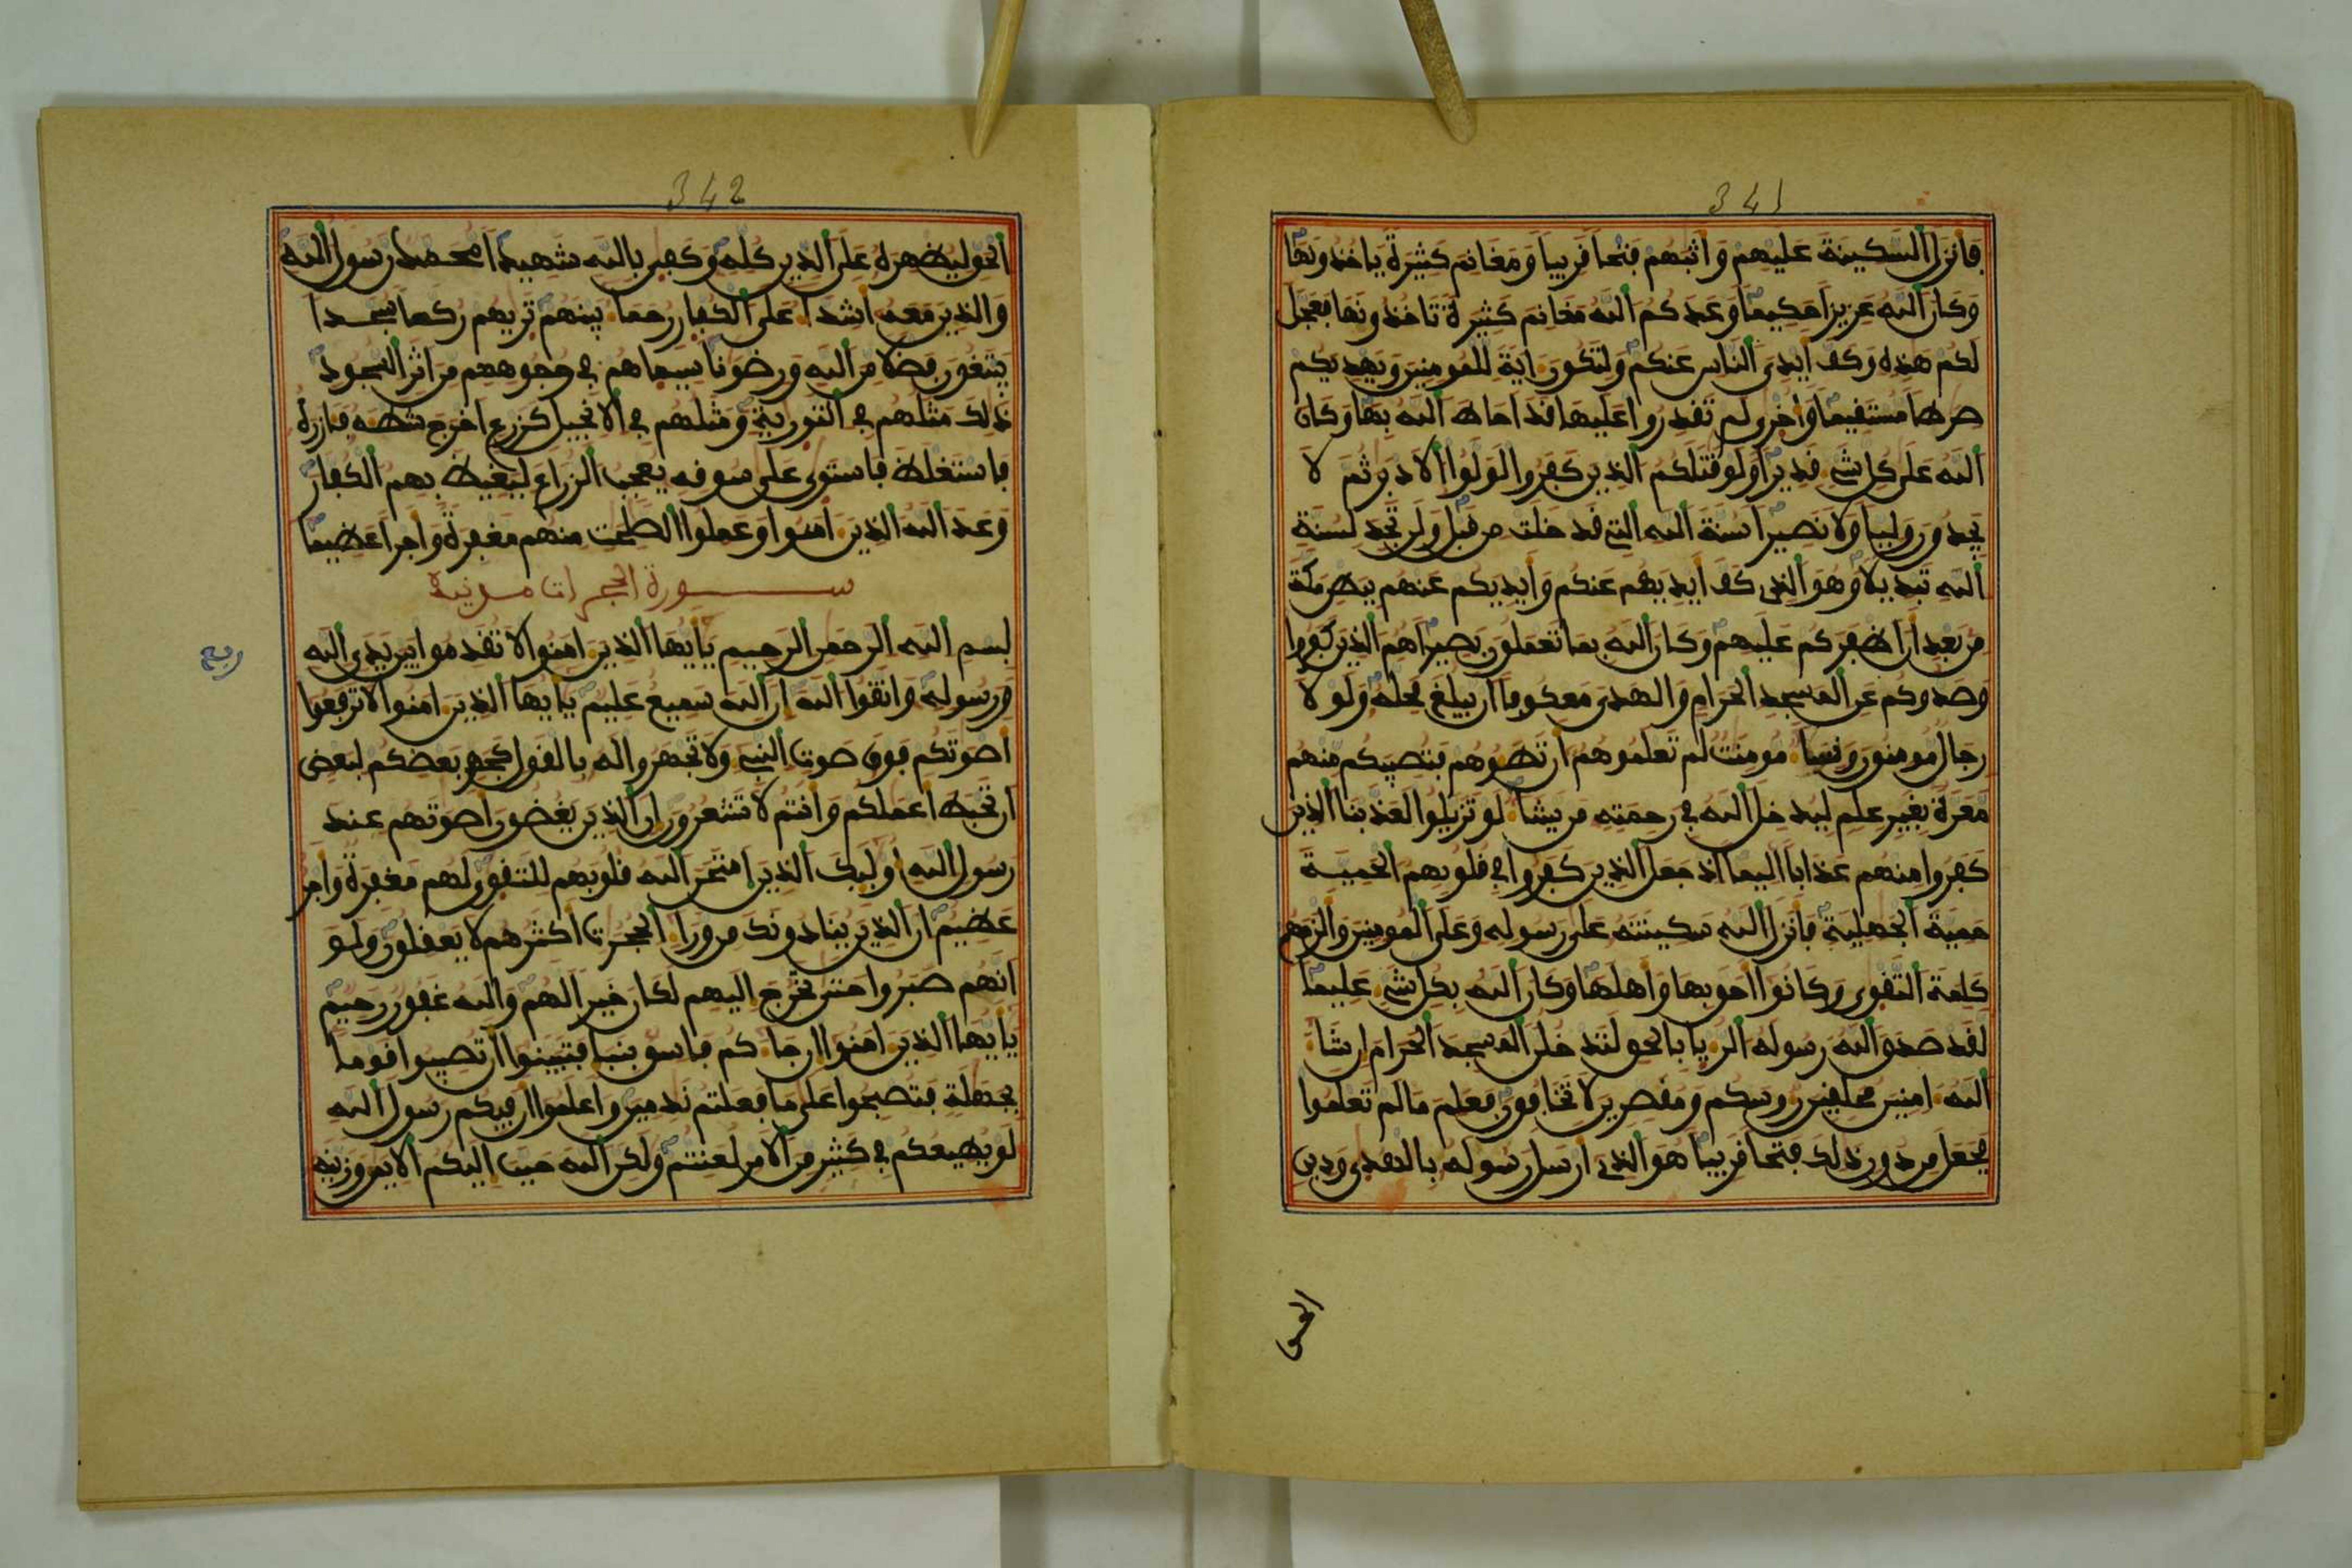 341
فانزل السكينة عليهم واثبهم فتحا قريبا ومغانم كثيرة ياخذونها
وكان الله عزيزا حكيما وعدكم الله مغانم كثيرة تاخذونها فعجل
لكم هذه وكف ايدي الناس عنكم ولتكون اية للمومنين ويهديكم
صرطا مستقيما واخرى لم تقدروا عليها قد احاط الله بها وكان
الله على كل شيء قديرا ولو قتلكم الذين كفروا لولوا الادبر ثم لا
يجدون وليا ولا نصيرا سنة الله التي قد خلت من قبل ولن تجد لسنة
الله تبديلا وهو الذي كف ايديهم عنكم وايديكم عنهم ببطن مكة
من بعد ان اظفركم عليهم وكان الله بما تعملون بصيرا هم الذين كفروا
وصدوكم عن المسجد الحرام والهدي معكوفا ان يبلغ محله ولولا
رجال مومنون ونساء مومنت لم تعلموهم ان تطوهم فتصيبكم منهم
معرة بغير علم ليدخل الله في رحمته من يشاء لو تزيلوا لعذبنا الذين
كفروا منهم عذابا اليما اذ جعل الذين كفروا في قلوبهم الحمية
حمية الجهلية فانزل الله سكينته على رسوله وعلى المومنين والزمهم
كلمة التقوى وكانوا احق بها واهلها وكان الله بكل شيء عليما
لقد صدق الله رسوله الريا بالحق لتدخلن المسجد الحرام ان شاء
الله امنين محلقين روسكم ومقصرين لا تخافون فعلم ما لم تعلموا
فجعل من دون ذلك فتحا قريبا هو الذي ارسل رسوله بالهدى ودين
الحق
342
الحق ليظهره على الدين كله وكفى بالله شهيدا محمد رسول الله
والذين معه اشداء على الكفار رحماء بينهم تريهم ركعا سجدا
يبتغون فضلا من الله ورضونا سيماهم في وجوههم من اثر السجود
ذلك مثلهم في التورية ومثلهم في الانجيل كزرع اخرج شطه فازره
فاستغلظ فاستوى على سوقه يعجب الزراع ليغيظ بهم الكفار
وعد الله الذين امنوا وعملوا الصلحت منهم مغفرة واجرا عظيما
ســــورة الحجرات مدنية
بسم الله الرحمن الرحيم يايها الذين امنوا لا تقدموا بين يدي الله
ورسوله واتقوا الله ان الله سميع عليم يايها الذين امنوا لا ترفعوا
اصوتكم فوق صوت النبيء ولا تجهروا له بالقول كجهر بعضكم لبعض
ان تحبط اعملكم وانتم لا تشعرون ان الذين يغضون اصوتهم عند
رسول الله اوليك الذين امتحن الله قلوبهم للتقوى لهم مغفرة واجر
عظيم ان الذين ينادونك من وراء الحجرت اكثرهم لا يعقلون ولو
انهم صبروا حتى تخرج اليهم لكان خيرا لهم والله غفور رحيم
يايها الذين امنوا ان جاءكم فاسق بنبا فتبينوا ان تصيبوا قوما
بجهلة فتصبحوا على ما فعلتم ندمين واعلموا ان فيكم رسول الله
لو يطيعكم في كثير من الامر لعنتم ولكن الله حبب اليكم الايمن وزينه
ربع